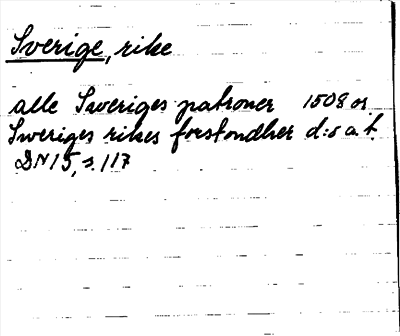 Sverige, rike
alle Sweriges patroner 1508 or
Sweriges rikes forstondher d:o a.t.
DN 15, s. 117